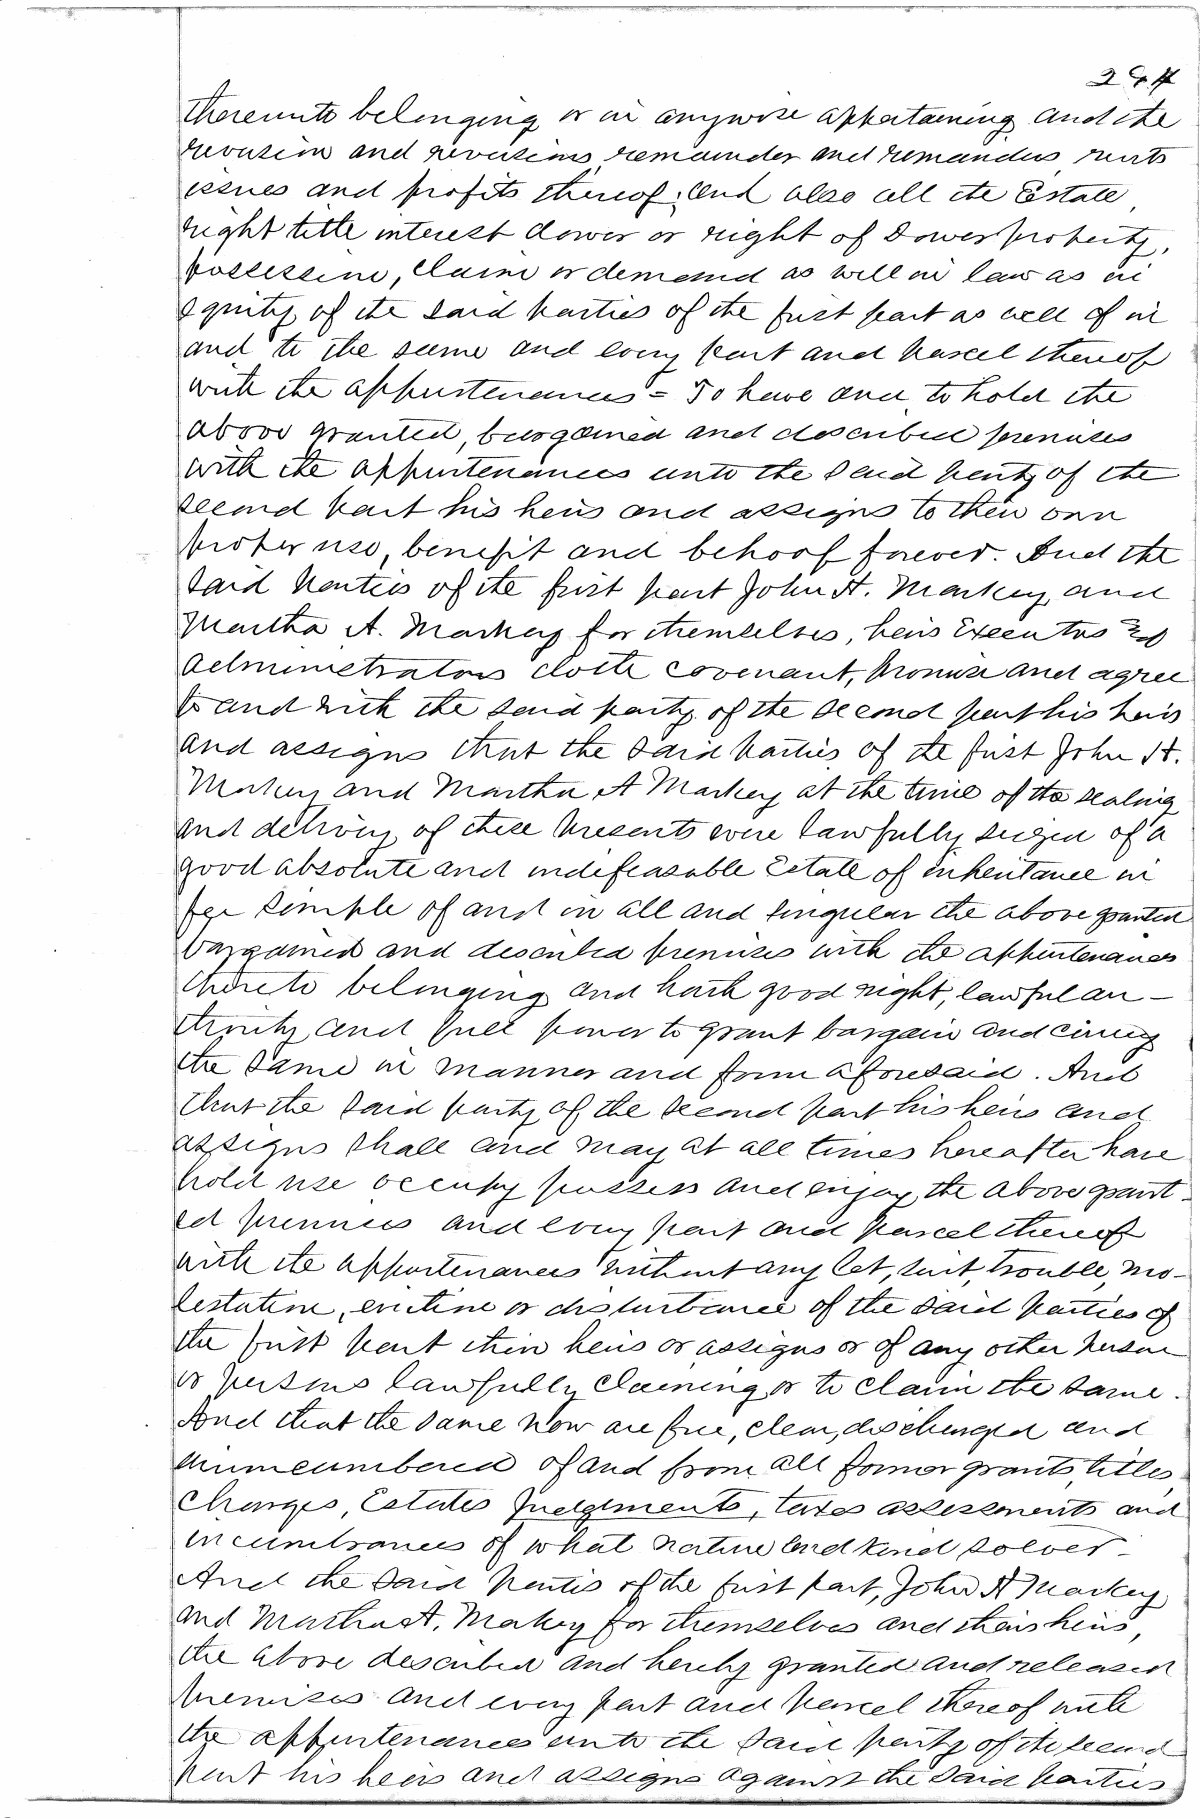 294
thereunto belonging or in anywise appertaining and the
revrsion and reversions, remainder and remainders, rents
issues and profits thereof; and also all the Estate,
right title interest dower or right of Dower property,
possession, claim or demand as well in law as in
equity of the said parties of the first part as well of in
and to the same and every part and parcel thereof
with the appurtenances = To have and to hold the
above granted, bargained and described premises
with the appurtenances unto the said party of the
second part his heirs and assigns to their own
proper use, benefit and behoof forever. And the
said parties of the first part John H. Markey and
Martha A. Markey for themselves, heirs Executors and
administrators doth covenant, promise and agree
to and with the said party of the second part his heirs
and assigns that the said parties of the first John H.
Markey and Martha A Markey at the time of the sealing
and delivery of these presents were lawfully seized of a
good absolute and indefeasable Estate of inheritance in
fee simple of and in all and singular the above granted
bargained and described premises with the appurtenances
thereto belonging and hath good right, lawful au-
thority and full power to grant bargain and convey
the same in manner and form aforesaid. And
that the said party of the second part his heirs and
assigns shall and may at all times hereafter have
hold use occupy possess and enjoy the above grant-
ed premises and every part and parcel thereof
with the appurtenances without any let, suit, trouble, mo-
lestation, eviction or disturbance of the said parties of
the first part their heirs or assigns or of any other person
or persons lawfully claiming or to claim the same.
And that the same now are free, clear, discharged and
unincumbered of and from all former grants, titles,
charges, Estates Judgments, taxes assessments and
incumbrances of what nature and kind soever-
And the said parties of the first part, John H Markey
and Martha A. Markey for themselves and their heirs,
the above described and hereby granted and released
premises and every part and parcel thereof with
the appurtenances unto the said party of the second
part his heirs and assigns against the said parties